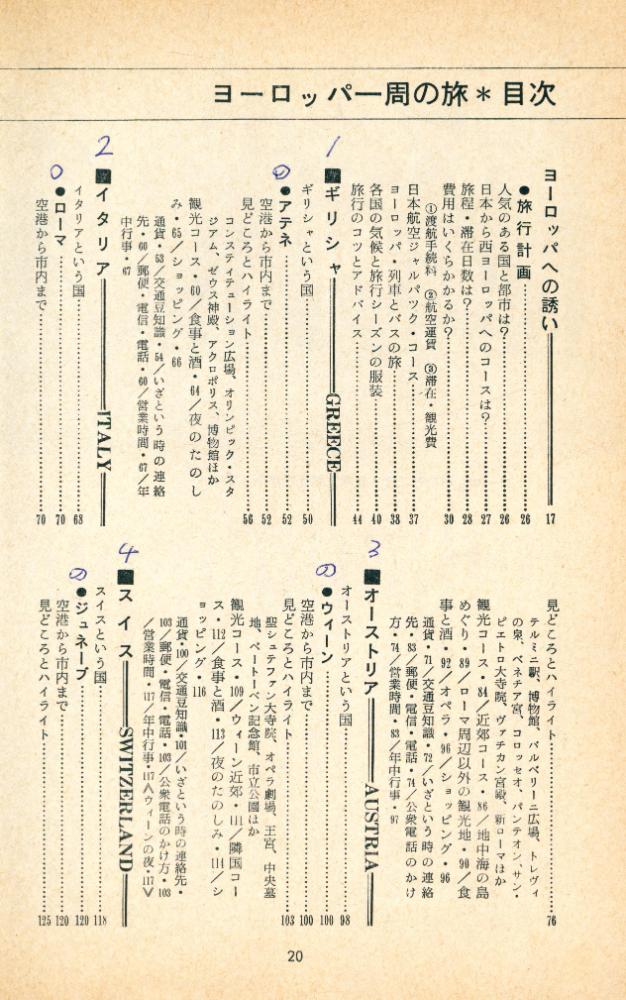 ヨーロッパ一周の旅＊目次
ヨーロッパへの誘い 17
●旅行計画 26
人気のある国と都市は？ 26
日本から西ヨーロッパへのコースは？ 27
旅程・滞在日数は？ 28
費用はいくらかかるか？ 30
①渡航手続料 ②航空運賃 ③滞在・観光費
日本航空ジャルパック・コース 37
ヨーロッパ・列車とバスの旅 38
各国の気候と旅行シーズンの服装 40
旅行のコツとアドバイス 44
1
■ギリシャ GREECE
ギリシャという国 50
の
●アテネ 52
空港から市内まで 52
見どころとハイライト 56
コンスティテューション広場、オリンピック・スタ
ジアム、ゼウス神殿、アクロポリス、博物館ほか
観光コース・60／食事と酒・64／夜のたのし
み・65／ショッピング・66
通貨・53／交通豆知識・54／いざという時の連絡
先・60／郵便・電信・電話・60／営業時間・67／年
中行事・67
2
■イタリア ITALY
イタリアという国 68
●ローマ 70
空港から市内まで 70
見どころとハイライト 76
テルミニ駅、博物館、バルベリーニ広場、トレヴィ
の泉、ベネチア宮、コロッセオ、パンテオン、サン・
ピエトロ大寺院、ヴァチカン宮殿、新ローマほか
観光コース・84／近郊コース・86／地中海の島
めぐり・89／ローマ周辺以外の観光地・90／食
事と酒・92／オペラ・96／ショッピング・96
通貨・71／交通豆知識・72／いざという時の連絡
先・83／郵便・電信・電話・74／公衆電話のかけ
方・74／営業時間・83／年中行事・97
3
■オーストリア AUSTRIA
オーストリアという国 98
の
●ウィーン 100
空港から市内まで 100
見どころとハイライト 103
聖シュテファン大寺院、オペラ劇場、王宮、中央墓
地、ベートーベン記念館、市立公園ほか
観光コース・109／ウィーン近郊・111／隣国コー
ス・112／食事と酒・113／夜のたのしみ・114／シ
ョッピング・116
通貨・100／交通豆知識・101／いざという時の連絡先・
103／郵便・電信・電話・103／公衆電話のかけ方・103
／営業時間・117／年中行事・117〈ウィーンの夜・117〉
4
■スイス SWITZERLAND
スイスという国 118
の
●ジュネーブ 120
空港から市内まで 120
見どころとハイライト 125
20